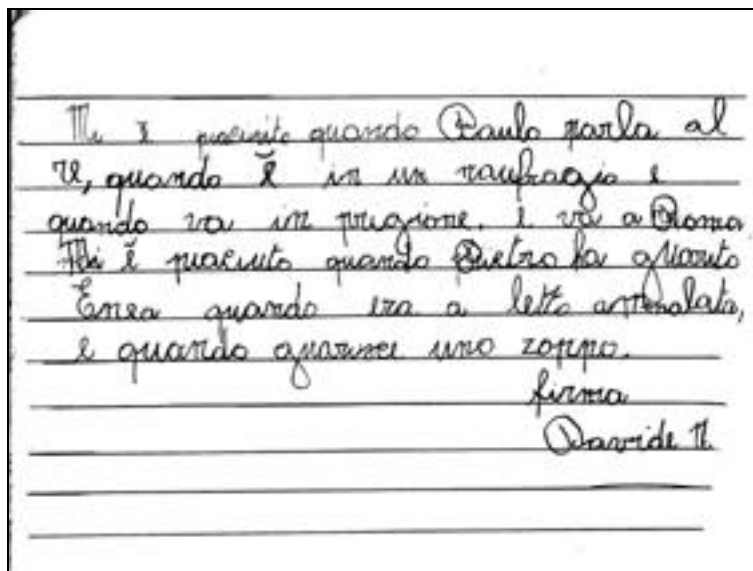 Mi è piaciuto quando Paulo parla al
re, quando è in un naufragio e
quando va in prigione. e va a Roma.
Mi è piaciuto quando Pietro ha guarito
Enea quando era a letto ammalato,
e quando guarisce uno zoppo.
firma
Davide N.